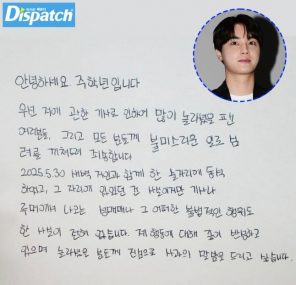 Dispatch
안녕하세요 주학년입니다
우선 저에 관한 기사로 인하여 많이 놀라셨을 팬
여러분들, 그리고 모든 분들께 불미스러운 일로 심
려를 끼쳐드려 죄송합니다
2025.5.30 새벽 지인과 함께 한 술자리에 동석
하였고, 그 자리에 있었던 건 사실이지만 기사나
루머에서 나오는 성매매나 그 어떠한 불법적인 행위도
한 사실이 전혀 없습니다. 제 행동에 대해 깊이 반성하고
있으며 놀라셨을 분들께 진심으로 사과의 말씀을 드리고 싶습니다.